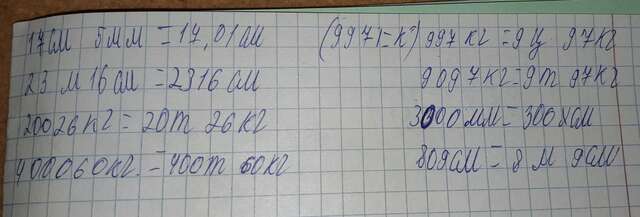 17см 5мм = 17,01см
23 м 16см = 2316см
20026кг = 20т 26кг
400060кг. = 400т 60кг
997кг = 9ц 97кг
9097кг = 9т 97кг
3000мм = 300см
809см = 8м 9см